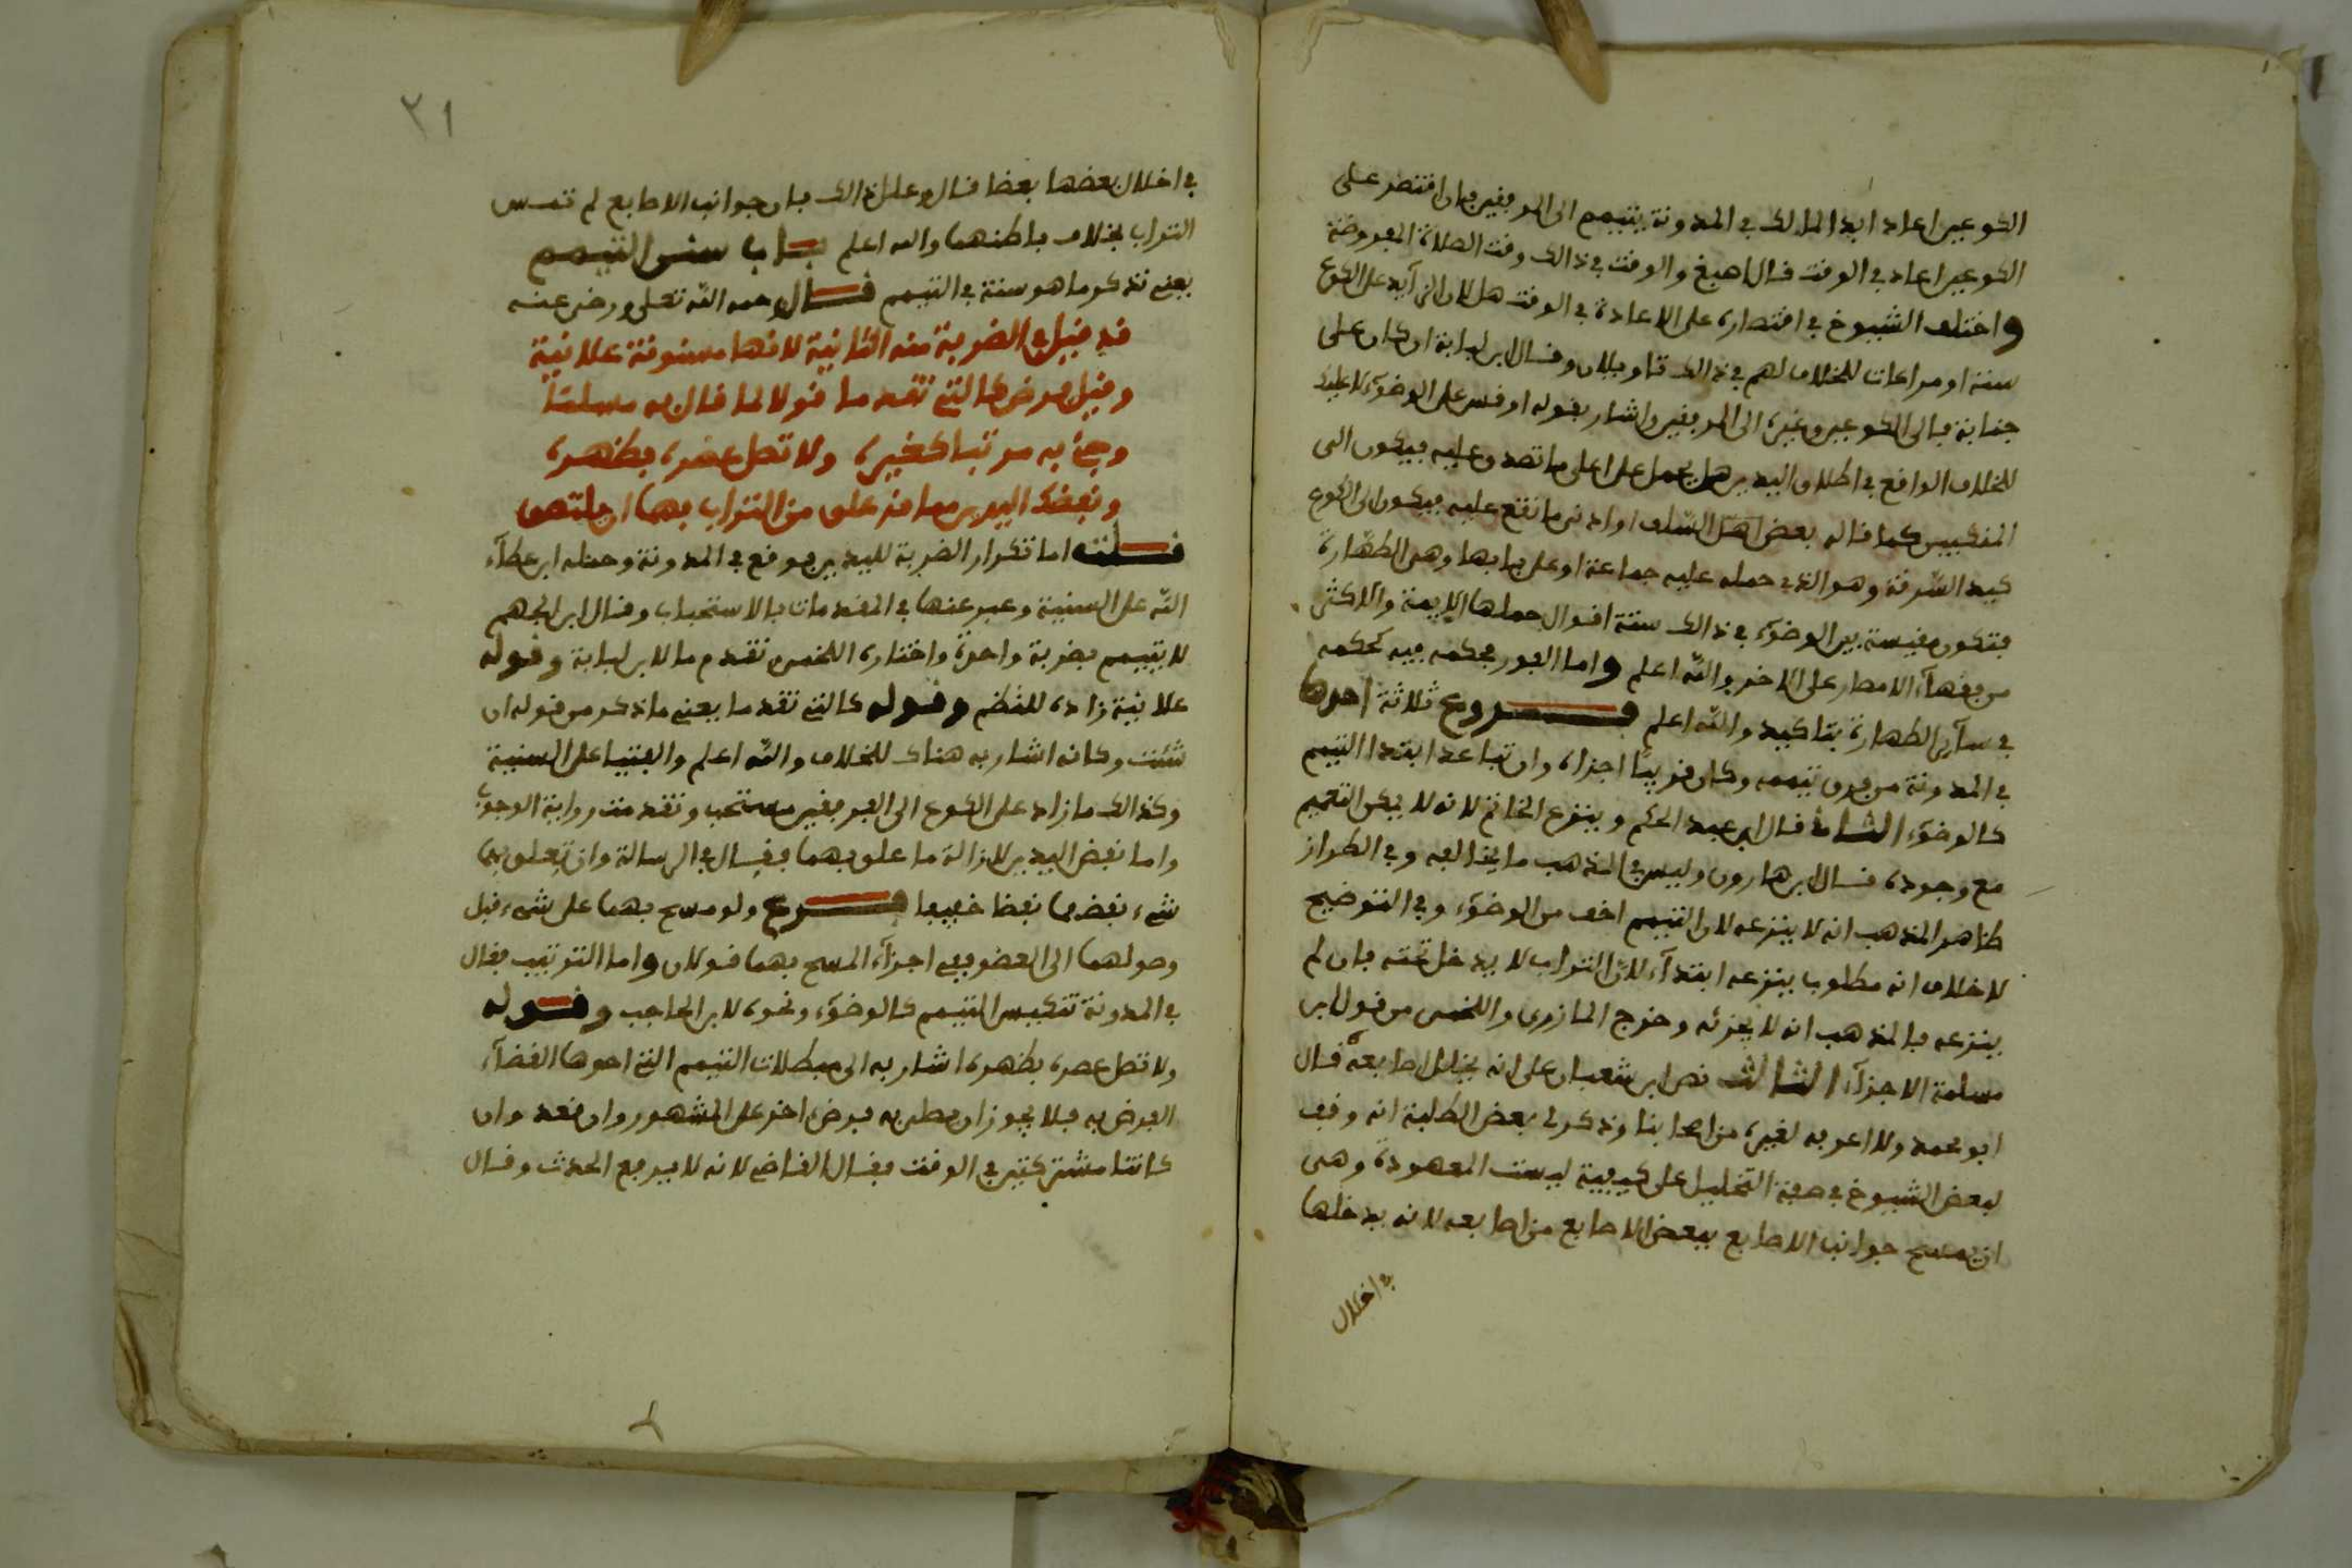 الكوعين اعاد ابدا لمالك في المدونة يتيمم الى المرفقين فان اقتصر على
الكوعين اعاد في الوقت قال اصبغ والوقت في ذالك وقت الصلاة المفروضة
واختلف الشيوخ في اقتصاره على الاعادة في الوقت هل لان الزايد على الكوع
سنة او مراعات للخلاف لهم في ذالك تاويلان وقال ابن لبابة ان كان على
جنابة فالى الكوعين وغيره الى المرفقين واشار بقوله اوقس على الوضوء
للخلاف الواقع في اطلاق اليدين هل يحمل على اعلى ما تصدق عليه فيكون الى
المنكبين كما قاله بعض اهل السلف او ادنى ما تقع عليه فيكون الى الكوع
كيد السرقة وهو الذي حمله عليه جماعة او على بابها وهى الطهارة
فتكون مقيسة بين الوضوء في ذالك ستة اقوال جملها الايمة والاكثر
من فقهاء الامصار على الاخر والله اعلم واما الفور فحكمه فيه كحكمه
في ساير الطهارة بتاكيد والله اعلم فروع ثلاثة احدها
في المدونة من فرق تيممه وكان قريبا اجزاه وان تباعد ابتدا التيمم
كالوضوء الثاني قال ابن عبد الحكم وينزع الخاتم لانه لا يمكن التعميم
مع وجوده قال ابن هارون وليس في المذهب ما يخالفه وفي الطراز
ظاهر المذهب انه لا ينزعه لان التيمم اخف من الوضوء وفي التوضيح
لا خلاف انه مطلوب ينزعه ابتداء لان التراب لا يدخل تحته فان لم
ينزعه فالمذهب انه لا يجزئه وخرج المازرى واللخمى من قول ابن
مسلمة الاجزاء الثالث نص ابن شعبان على انه يخلل اصابعه قال
ابو محمد ولا اعرفه لغيره من اصحابنا وذكر لى بعض الطلبة انه وقف
لبعض الشيوخ في صفة التخليل على كيفية ليست المعهودة وهى
ان يمسح جوانب الاصابع ببعض الاصابع من اصابعه لانه يدخلها
في اخلال
٢١
في اخلال بعضها بعضا قال وعلل ذالك بان جوانب الاصابع لم تمس
التراب بخلاف باطنهما والله اعلم باب سنن التيمم
يعنى تذكر ما هو سنة في التيمم قال رحمه الله تعلى ورضى عنه
قد قيل في الضربة منه الثانية لانها مسنونة علانية
وقيل فرض كالتى تقدما قولا لما قال به مسلما
وجئ به مرتبا كغيره ولا تصل عصره بظهره
ونفضك اليدين مما قد علق من التراب بهما ان يلتصق
قلت اما تكرار الضربة لليدين فوقع في المدونة وحمله ابن عطاء
الله على السنية وعبر عنها في المقدمات بالاستحباب وقال ابن الجهم
لا يتيمم بضربة واحدة واختاره اللخمى وتقدم ما لابن لبابة وقوله
علانية زاده للنظم وقوله كالتى تقدما يعنى ما ذكر من قوله ان
شئت وكانه اشار به هناك للخلاف والله اعلم والفتيا على السنية
وكذالك ما زاد على الكوع الى المرفقين مستحب وتقدمت رواية الوجوب
واما نفض اليدين لازالة ما علق بهما فقال في الرسالة وان تعلق بهما
شىء نفضهما نفضا خفيفا فرع ولو مسح بهما على شىء قبل
وصولهما الى العضو ففى اجزاء المسح بهما قولان واما الترتيب فقال
في المدونة تنكيس التيمم كالوضوء ونحوه لابن الحاجب وقوله
ولا تصل عصره بظهره اشار به الى مبطلات التيمم التى احدها القضاء
الفرض به فلا يجوز ان يصلى به فرض اخر على المشهور وان فعد وان
كانتا مشتركتين في الوقت فقال القاضى لانه لا يرفع الحدث وقال